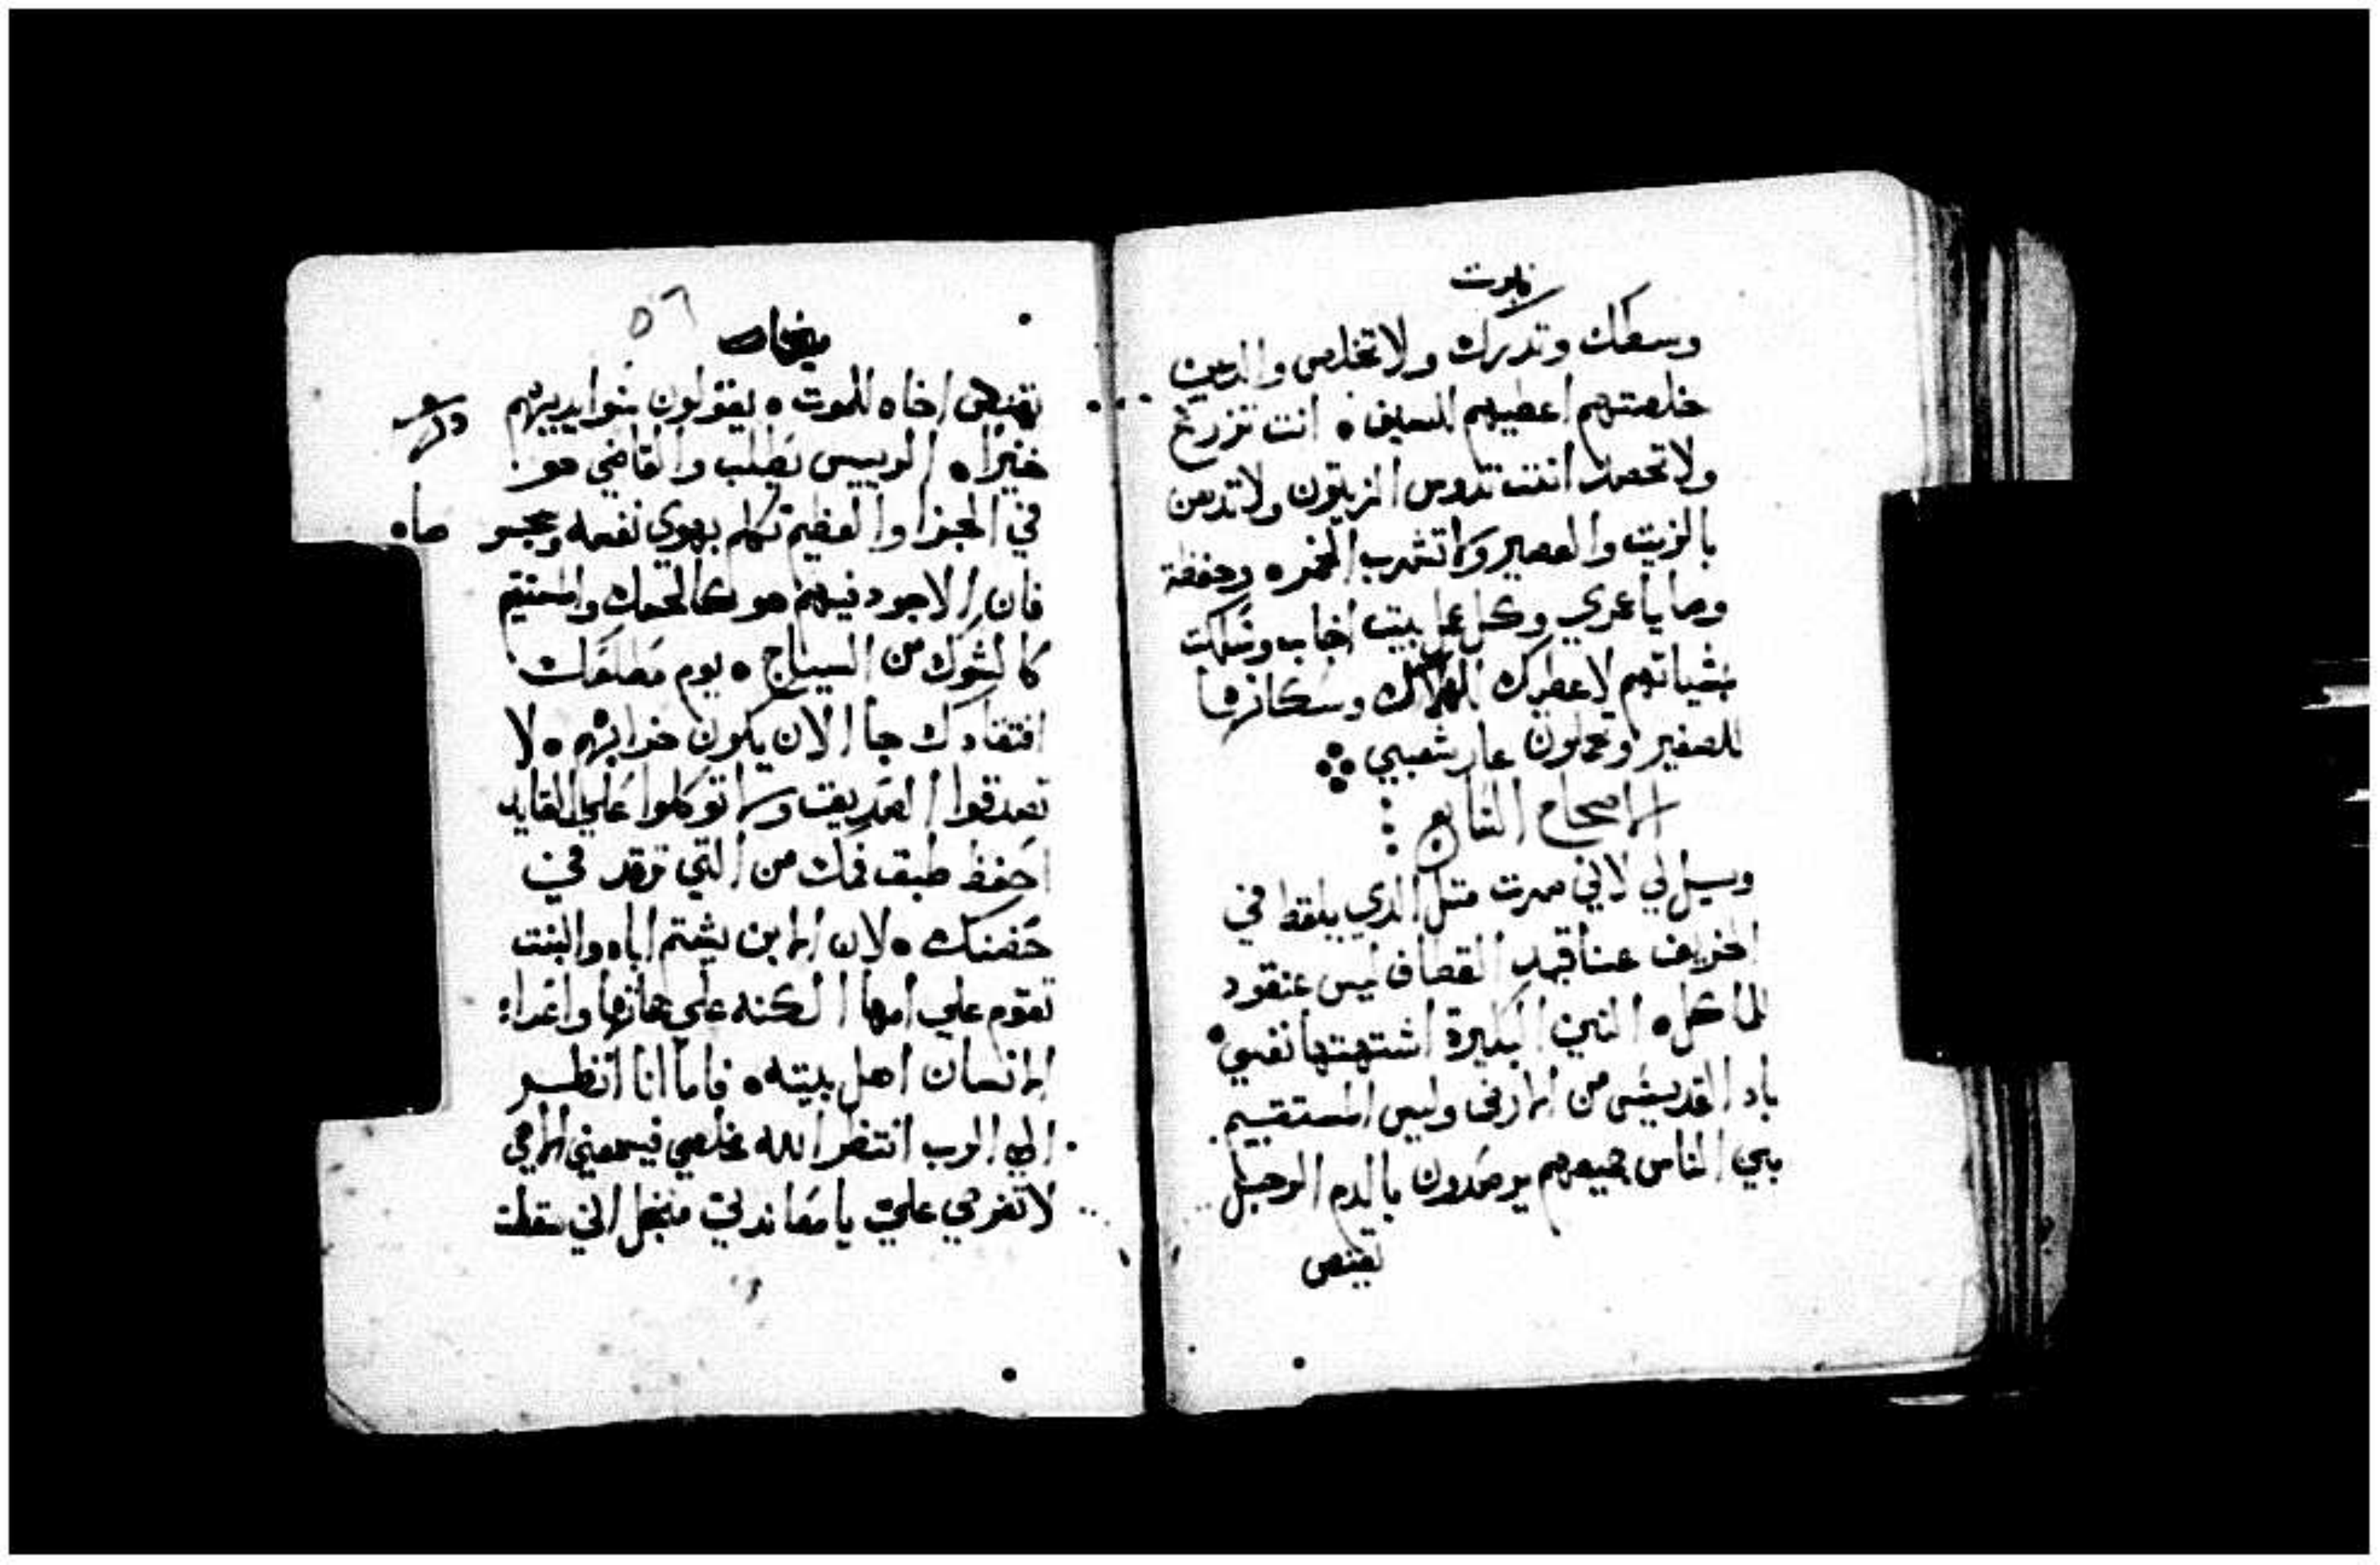 نبوت
وسطك وتدرك ولا تخلص والدين
خلصتهم اعطيهم للسيف ٠ انت تزرع
ولا تحصد انت تدوس الزيتون ولا تدهن
بالزيت والعصير ولا تشرب الخمر ٠ وحفظة
وصايا عمري وكل عمل بيت اخاب وسلكت
بمشياتهم لاعطيك الهلاك وسكانها
للصفير وتحملون عار شعبي
الاصحاح السابع
ويل لي لاني صرت متل الدي يلقط في
الخريف عناقيد القطاف ليس عنقود
للماكل ٠ التين البكيرة اشتهتها نفسي ٠
باد القديس من الارض وليس المستقيم
بين الناس جميعهم يرصدون بالدم الرجل
تقتنص
ميخا
٥٦
تقتنص اخاه للموت ٠ يقولون شر ايديهم
خيرا ٠ الرييس يطلب والقاضي هو
في الجزا والعظيم تكلم بهوي نفسه
فان الاجود فيهم هو كالحسك والمستقيم
كالشوك من السياج ٠ يوم مطلعك
افتقادك جا الان يكون خرابهم ٠ لا
تصدقوا الصديق ولا توكلوا علي القايد
احفظ طبق فمك من التي ترقد في
حضنك ٠ لان الابن يشتم اباه والبنت
تقوم علي امها الكنه علي حماتها واعداء
الانسان اهل بيته ٠ فاما انا انظر
الي الرب انتظر الله مخلصي فيسمعني الاهي
لا تفرحي علي يا معاندتي من اجل اني سقطت